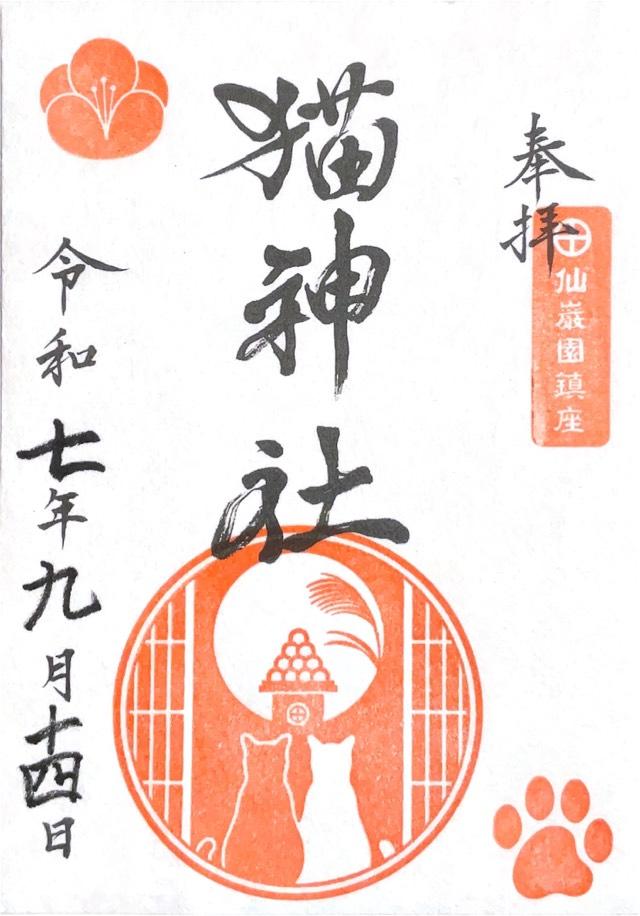 奉拝
仙巌園鎮座
猫神社
令和七年九月十四日